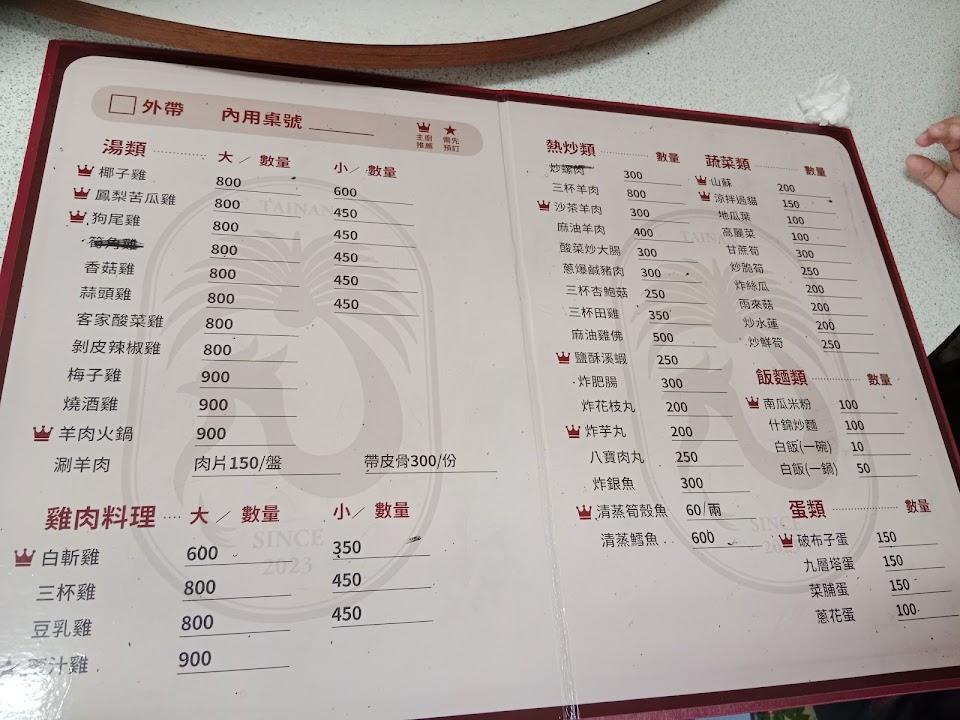 外帶 內用桌號
主廚推薦
需先預訂
湯類 大 / 數量 小 / 數量
椰子雞 800 600
鳳梨苦瓜雞 800 450
狗尾雞 800 450
800 450
香菇雞 800 450
蒜頭雞 800 450
客家酸菜雞 800
剝皮辣椒雞 800
梅子雞 900
燒酒雞 900
羊肉火鍋 900
涮羊肉 肉片150/盤 帶皮骨300/份
雞肉料理 大 / 數量 小 / 數量
白斬雞 600 350
三杯雞 800 450
豆乳雞 800 450
汁雞 900
TAINAN
SINCE
2023
熱炒類 數量
炒螺肉 300
三杯羊肉 800
沙茶羊肉 300
麻油羊肉 400
酸菜炒大腸 300
蔥爆鹹豬肉 300
三杯杏鮑菇 250
三杯田雞 350
麻油雞佛 500
鹽酥溪蝦 250
炸肥腸 300
炸花枝丸 200
炸芋丸 200
八寶肉丸 250
炸銀魚 300
清蒸筍殼魚 60/兩
清蒸鱈魚 600
蔬菜類 數量
山蘇 200
涼拌過貓 150
地瓜葉 100
高麗菜 100
甘蔗筍 300
炒脆筍 250
炸絲瓜 200
雨來菇 200
炒水蓮 200
炒鮮筍 250
飯麵類 數量
南瓜米粉 100
什錦炒麵 100
白飯(一碗) 10
白飯(一鍋) 50
蛋類 數量
破布子蛋 150
九層塔蛋 150
菜脯蛋 150
蔥花蛋 100
TAINAN
SINCE